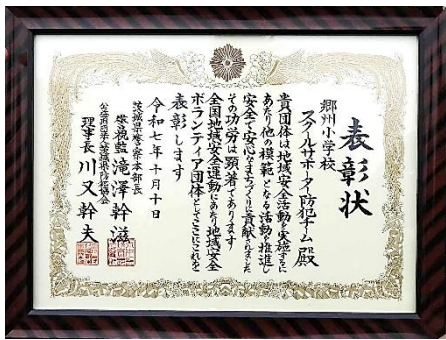 表彰状
郷州小学校
スクールサポーター防犯チーム殿
貴団体は地域安全活動を実施するに
あたり他の模範となる活動を推進し
安全で安心なまちづくりに貢献されました
その功労は顕著であります
全国地域安全運動にあたり地域安全
ボランティア団体としてここにこれを
表彰します
令和七年十月十日
茨城県警察本部長
警視監 滝澤幹滋
公益社団法人茨城県防犯協会
理事長 川又幹夫